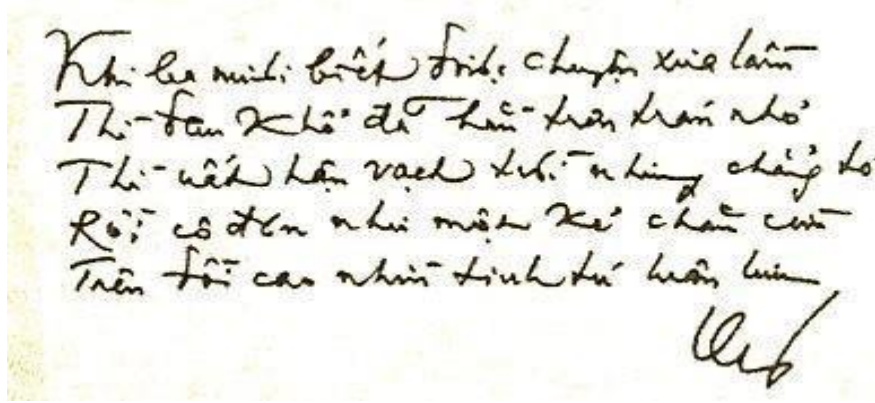 Khi biết chuyện xưa lầm
Thì đau khổ đã hằn trên trán nhỏ
Thì uất hận vạch trời nhưng chẳng tỏ
Rồi cô đơn như một kẻ chăn cừu
Trên đồi cao nhìn tinh tú luân lưu